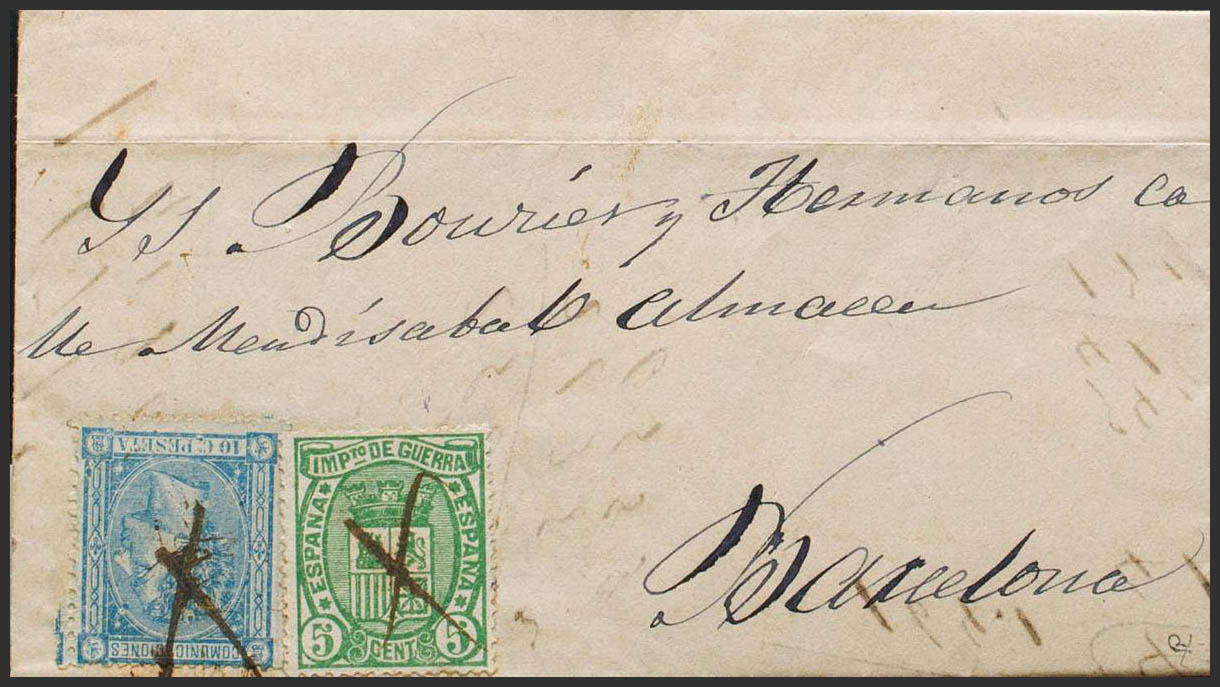 SS. Bourier y Hermanos ca
lle Mendisabal Almacen
Barcelona
10 C. PESETA
COMUNICACIONES
IMPTO DE GUERRA
ESPAÑA
ESPAÑA
5 CENT. 5